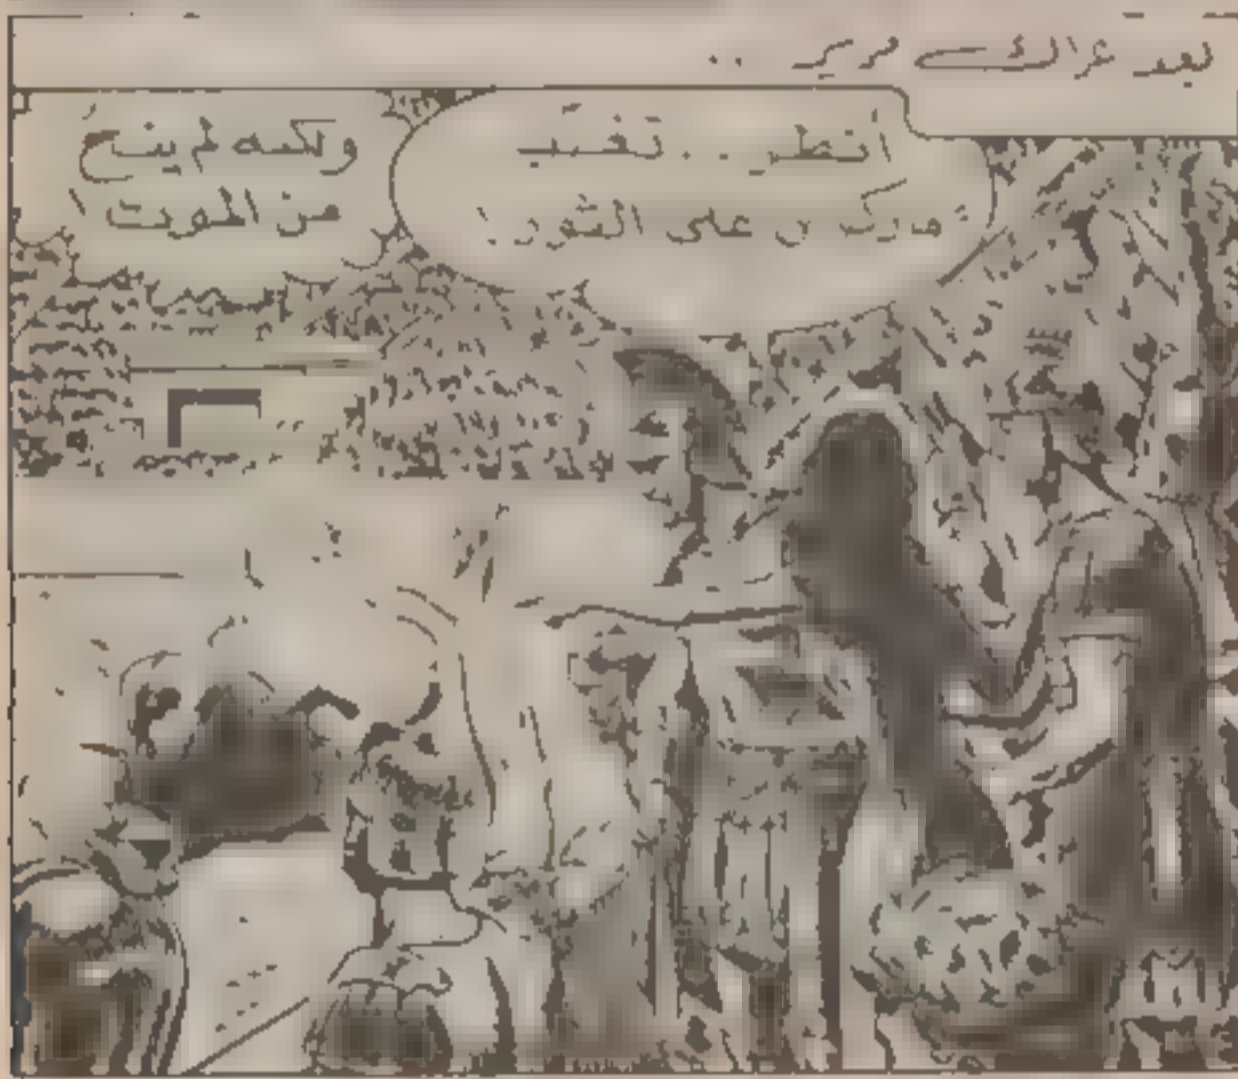 بعد عراك مرير ..
أنظر .. تغلب
مدرك ن على الثور !
ولكنه لم ينج
من الموت !